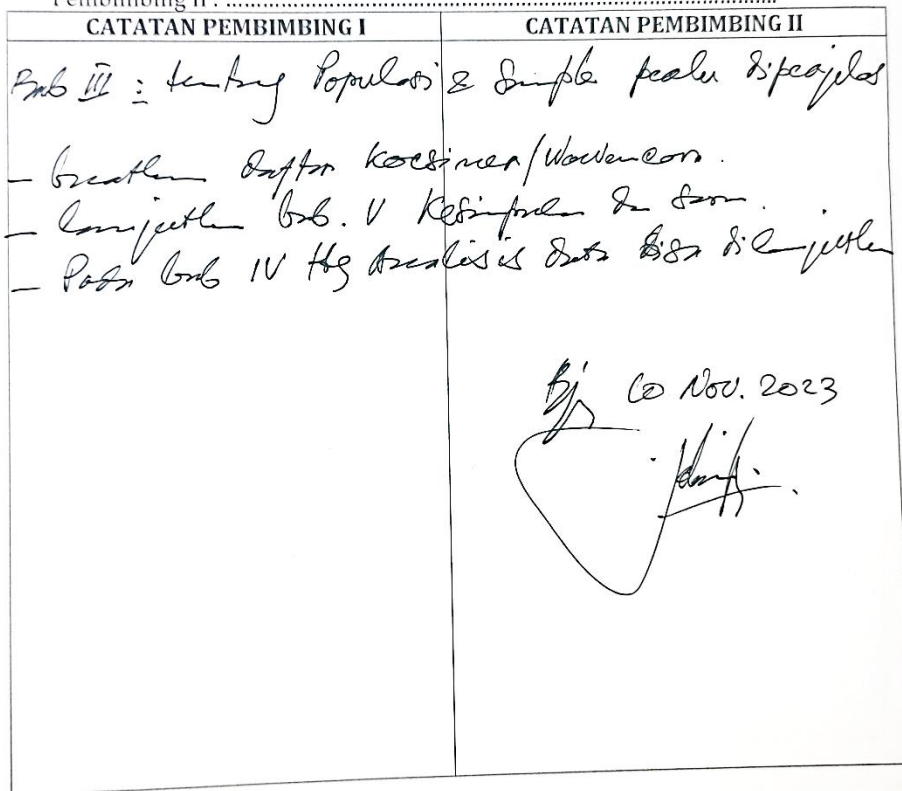 Pembimbing II : ........................................................................
CATATAN PEMBIMBING I
CATATAN PEMBIMBING II
Bab III : tentang Populasi & Sampel perlu diperjelas
- buatlah daftar koesiner/Wawancara.
- lanjutlan bab. V Kesimpulan dan Saran.
- Pada bab IV ttg Analisis data bisa dilanjutlan
Bjr 10 Nov. 2023